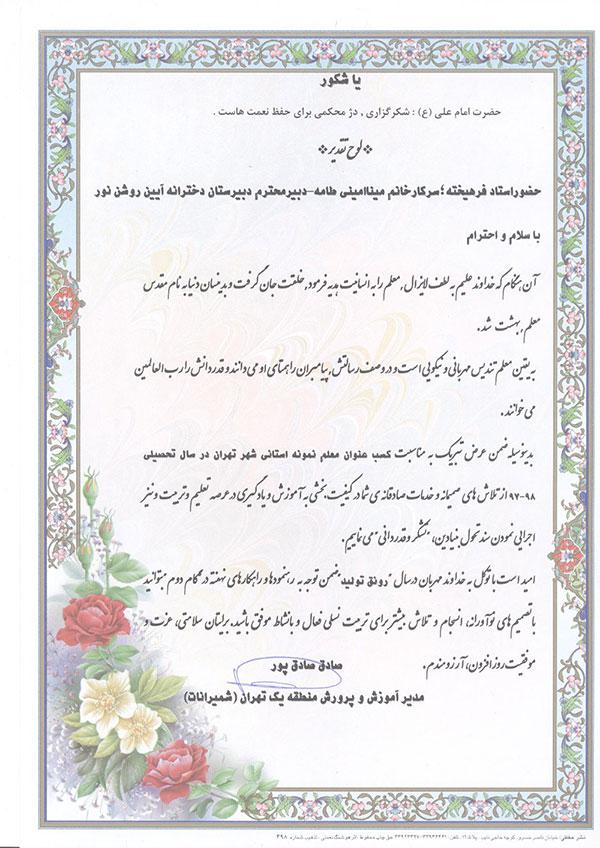 یا شکور
حضرت امام علی (ع) : شکرگزاری ، دژ محکمی برای حفظ نعمت هاست .
لوح تقدیر
حضور استاد فرهیخته ؛ سرکار خانم مینا امینی طامه – دبیر محترم دبیرستان دخترانه آیین روشن نور
با سلام و احترام
آن هنگام که خداوند علیم به لطف لایزال، معلم را به انسانیت هدیه فرمود، خلقت جان گرفت و بدینسان دنیا به نام مقدس
معلم، بهشت شد.
به یقین معلم تندیس مهربانی و نیکویی است و در وصف رسالتش، پیامبران را همتای او می دانند و قدر دانش را رب العالمین
می خوانند.
بدینوسیله ضمن عرض تبریک به مناسبت کسب عنوان معلم نمونه استانی شهر تهران در سال تحصیلی
۹۸-۹۷ از تلاش های صمیمانه و خدمات صادقانه ی شما در کیفیت بخشی به آموزش و یادگیری در عرصه تعلیم و تربیت و نیز
اجرایی نمودن سند تحول بنیادین، تشکر و قدردانی می نماییم.
امید است با توکل به خداوند مهربان در سال "رونق تولید" ضمن توجه به رهنمودها و راهکارهای نهفته در گام دوم بتوانید
با تصمیم های نوآورانه، انسجام و تلاش بیشتر برای تربیت نسلی فعال و بانشاط موفق باشید. برایتان سلامتی، عزت و
موفقیت روزافزون، آرزومندم.
صادق صادق پور
مدیر آموزش و پرورش منطقه یک تهران (شمیرانات)